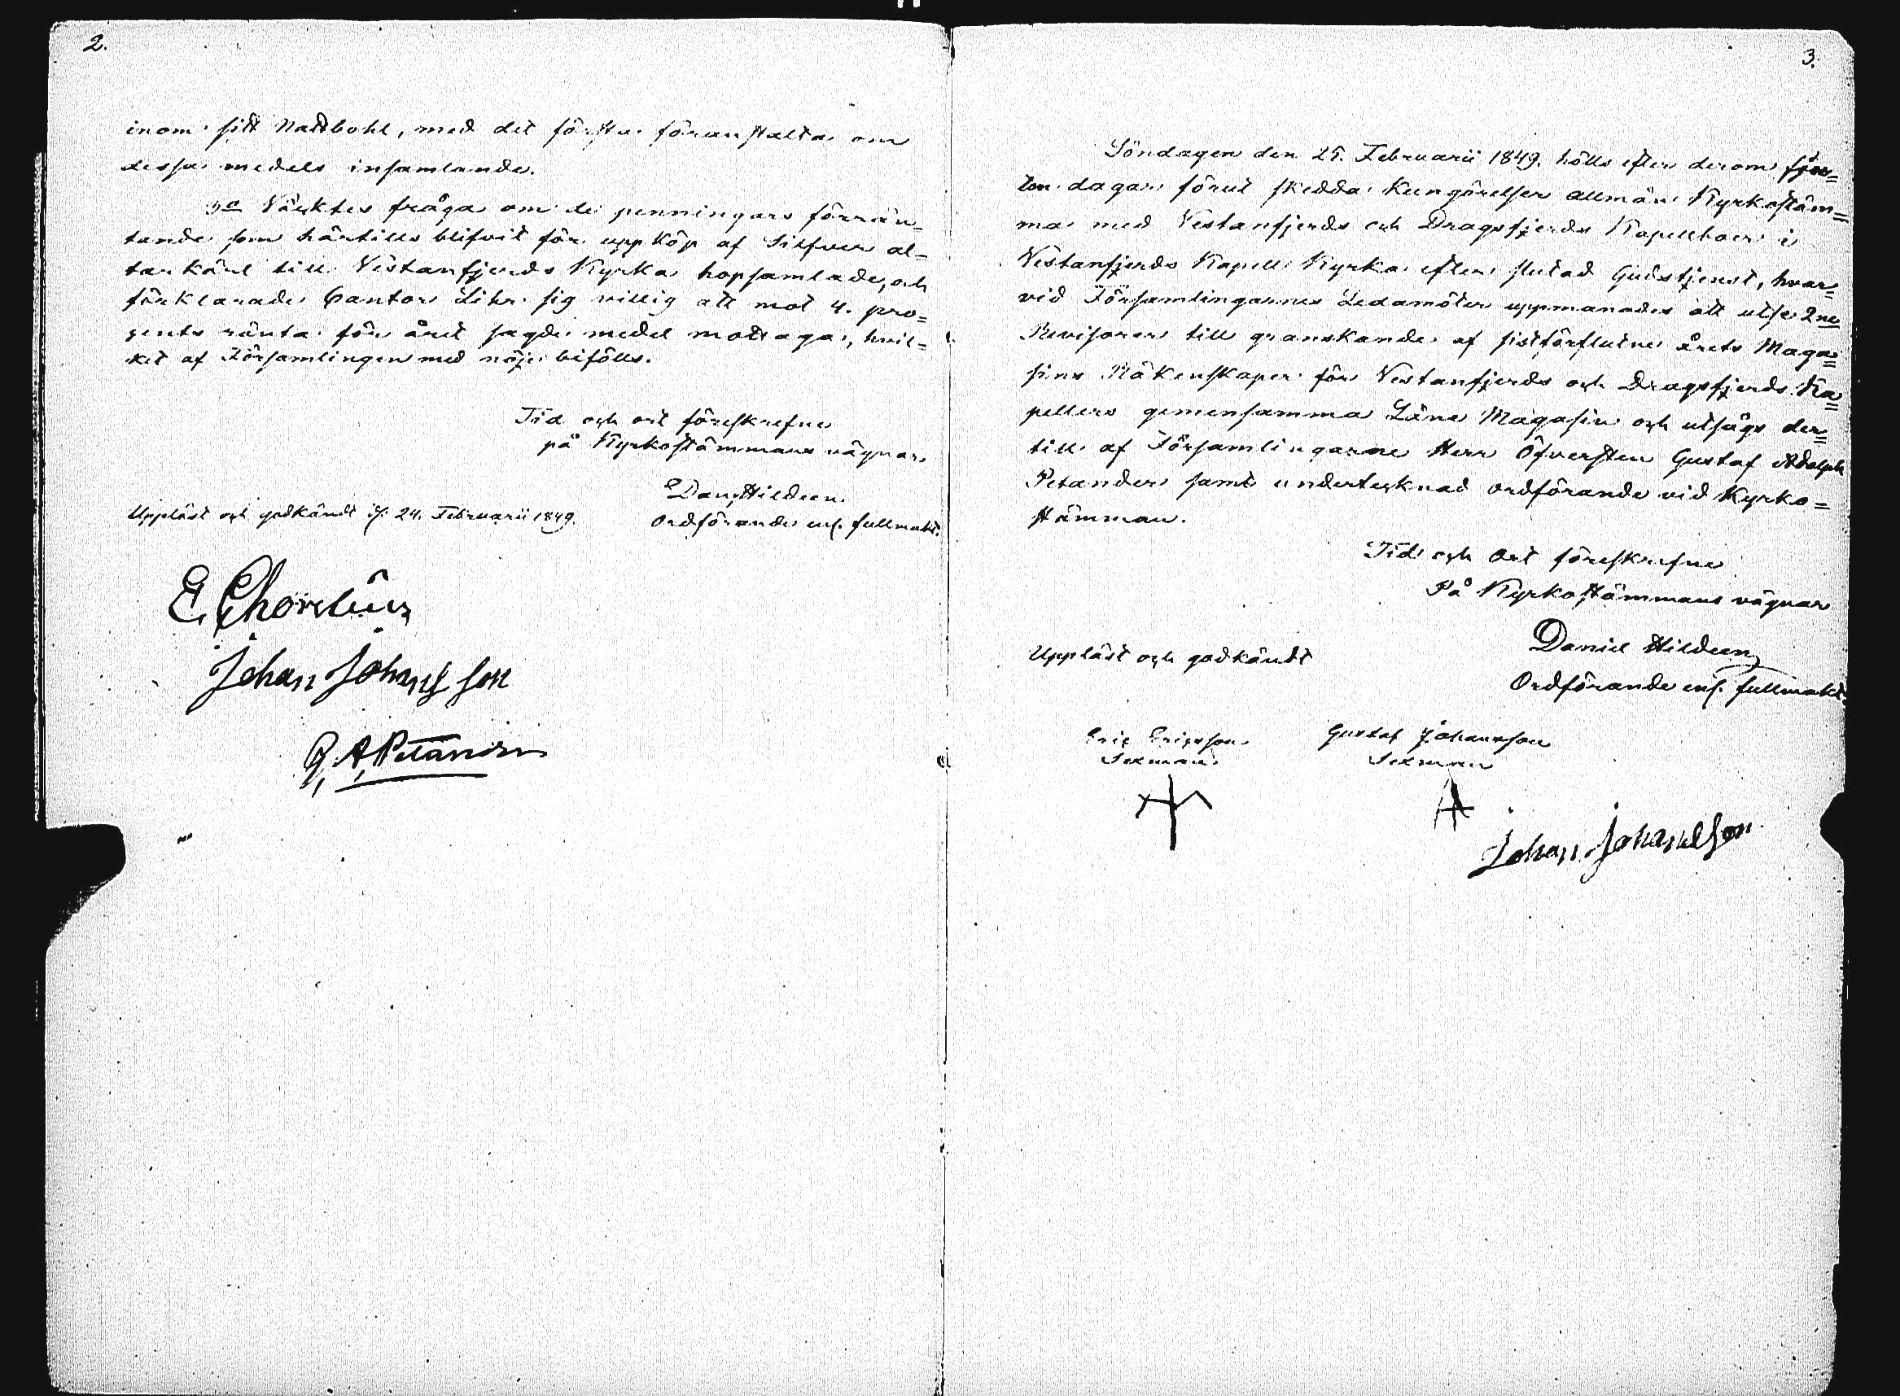 2.
inom sitt Nattbohl, med det första föranstalta om
dessa medels insamlande.
3o Väcktes fråga om de penningars förrän-
tande som härtills blifvit för uppköp af Silfver al-
tarkärl till Vestanfjerds Kyrka hopsamlade, och
förklarade Cantor Lihr sig villig att mot 4. pro=
cents ränta för året sagde medel mottaga, hvil=
ket af Församlingen med nöje bifölls.
Tid och ort föreskrefne
på Kyrkostämmans vägnar
Dan. Hildeen
Uppläst och godkändt d. 24. Februarii 1849.
Ordförande enl. fullmakt.
E. Chorelius
Johan Johansson
G. A. Petander
3.
Söndagen den 25. Februarii 1849. hölls efter derom fjor=
ton dagar förut skedda Kungörelser allmän Kyrkostäm=
ma med Vestanfjerds och Dragsfjerds Kapellboer i
Vestanfjerds Kapell Kyrka efter slutad Gudstjenst, hvar=
vid Församlingarnes Ledamöter uppmanades att utse 2ne
Revisorer till granskande af sistförflutne årets Maga=
sins Räkenskaper för Vestanfjerds och Dragsfjerds Ka=
pellers gemensamma Låne Magasin och utsågs der=
till af Församlingarne Herr Öfversten Gustaf Adolph
Petander samt undertecknad ordförande vid Kyrko=
stämman.
Tid och Ort föreskrefne
På Kyrkostämmans vägnar
Daniel Hildeen
Uppläst och godkändt
Ordförande enl. fullmakt.
Eric Ericsson Gustaf Johansson
Sexman Sexman
Johan Johansson